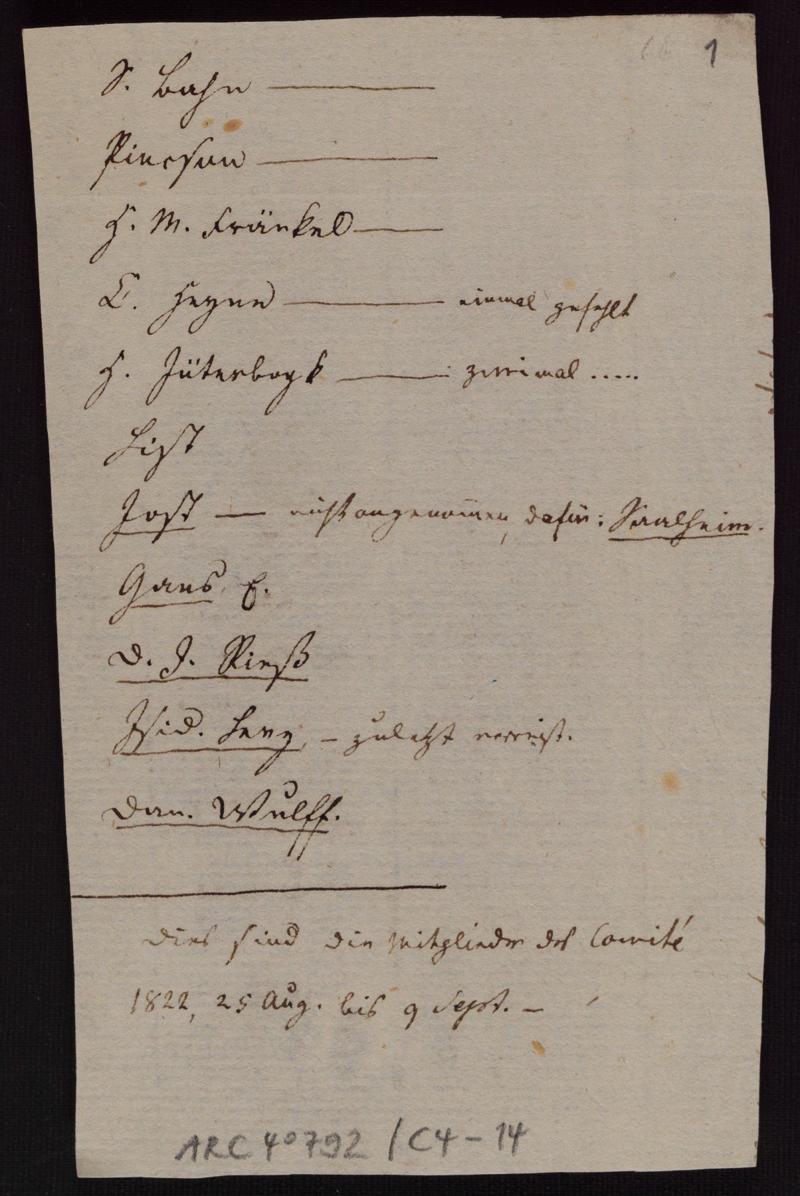 1
S. Bahn ———
Pincson ———
H. M. Fränkel ———
E. Heyne ——— einmal gefehlt
H. Jüterbogk ——— zweimal .....
List
Jost — nicht angenommen, dafür: Saalheim.
Gans E.
D. J. Rieß
Isid. Levy, – zuletzt verreist.
Dan. Wulff.
Dies sind die Mitglieder des Comité
1822, 25 Aug. bis 9 Sept. –
ARC 4°792 / C4-14